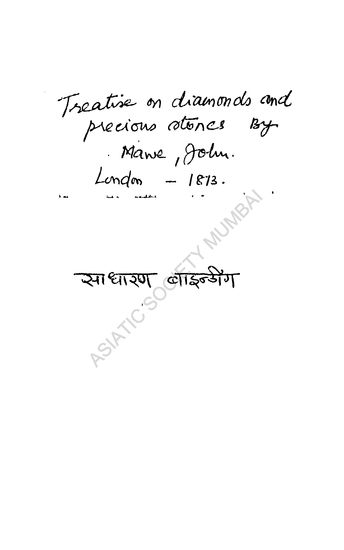 Treatise on diamonds and
precious stones By
Mawe, John.
London - 1813.
साधारण बाइन्डींग
ASIATIC SOCIETY MUMBAI